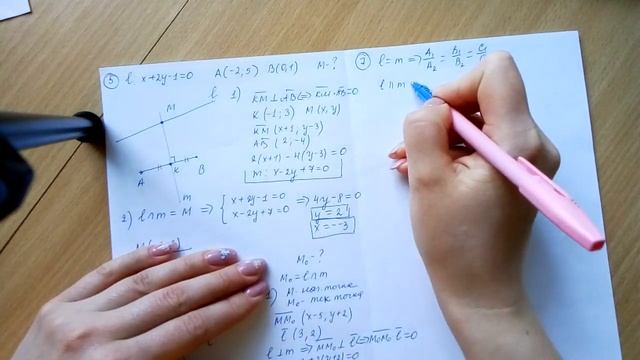 ⑤ l: x+2y-1=0 A(-2,5) B(0,1) M-?
l
M
A K B
m
1) KM⊥AB ⇔ KM·AB=0
K(-1;3) M(x,y)
KM(x+1, y-3)
AB(2,-4)
2(x+1)-4(y-3)=0
m: x-2y+7=0
2) l∩m=M ⇒ { x+2y-1=0
x-2y+7=0 ⇒ 4y-8=0
y=2
x=-3
M₀-?
M₀=l∩m
M-нач. точка
M₀-тек точка
MM₀(x-5, y+2)
l(3,2)
l⊥m ⇔ MM₀⊥l ⇔ M₀M₀·l=0
⑦ l=m ⇒ A₁/A₂ = B₁/B₂ = C₁/
l∩m